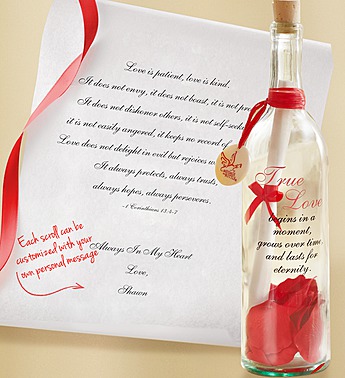 Love is patient, love is kind.
It does not envy, it does not boast, it is not
It does not dishonor others, it is not
it is not easily angered, it keeps no record of
Love does not delight in evil but rejoices
It always protects, always trusts,
always hopes, always perseveres.
-1 Corinthians 13:4-7
Always In My Heart
Love,
Shawn
Each scroll can be
customized with your
own personal message
True
Love
begins in a
moment,
grows over time,
and lasts for
eternity.